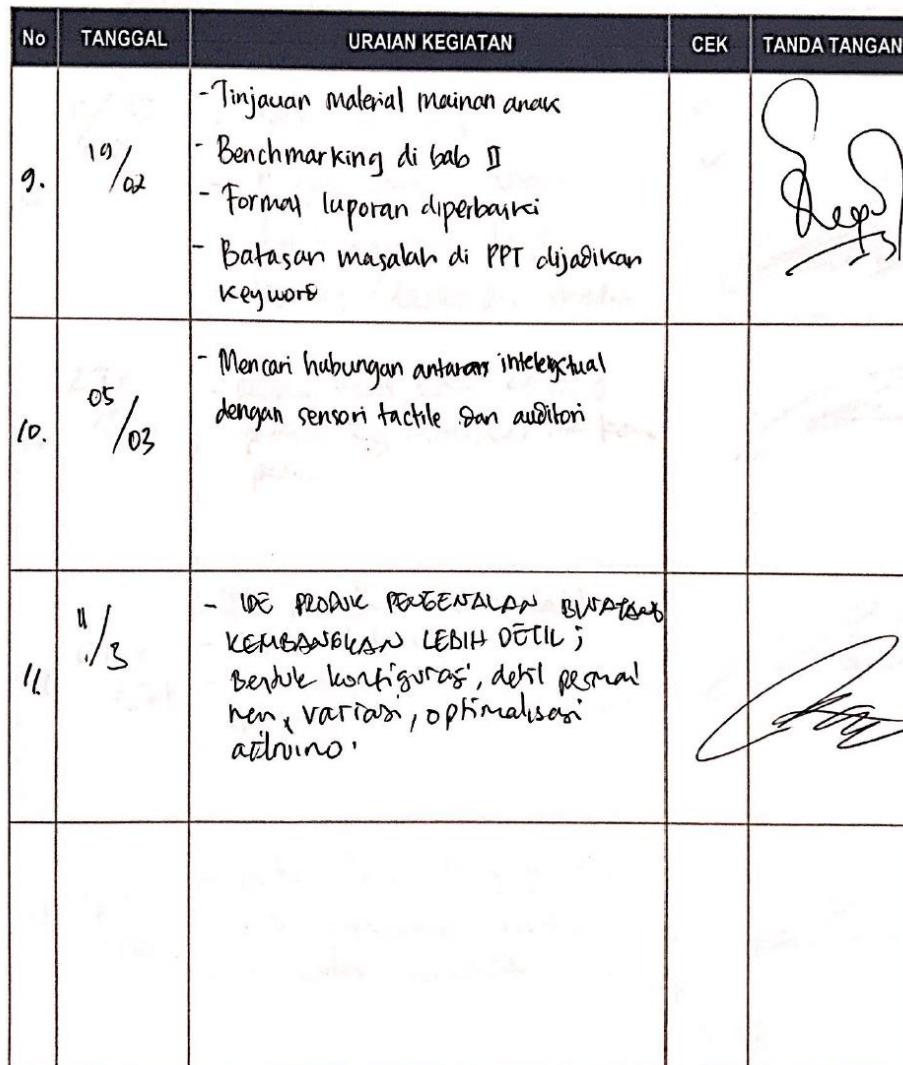 No TANGGAL URAIAN KEGIATAN CEK TANDA TANGAN
9. 19/02
- Tinjauan material mainan anak
- Benchmarking di bab II
- Format luporan diperbaiki
- Batasan masalah di PPT dijadikan
keyword
10. 05/03
- Mencari hubungan antara intelektual
dengan sensori tactile dan auditori
11. 11/3
- IDE PRODUK PENGENALAN BINATANG
KEMBANGKAN LEBIH DETIL;
Bentuk konfigurasi, detil permai
nen, variasi, optimalisasi